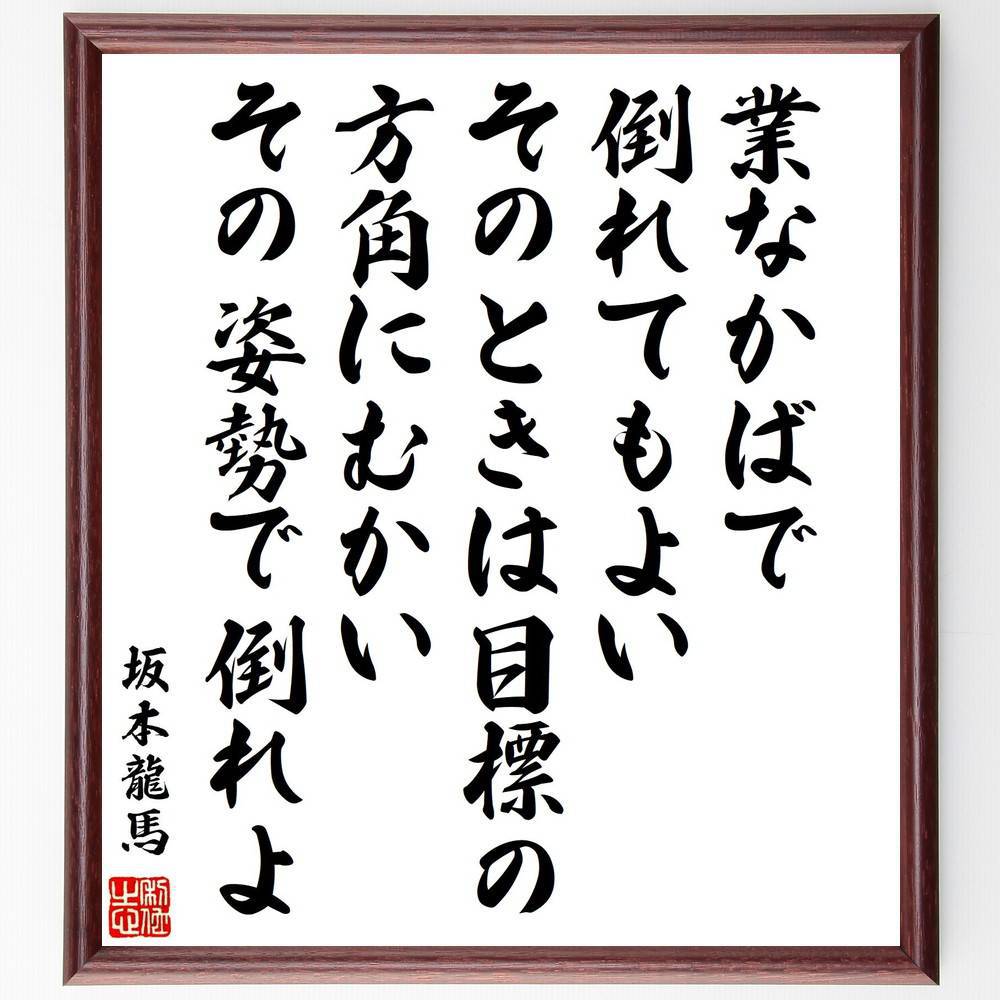 業なかばで
倒れてもよい
そのときは目標の
方角にむかい
その姿勢で倒れよ
坂本龍馬